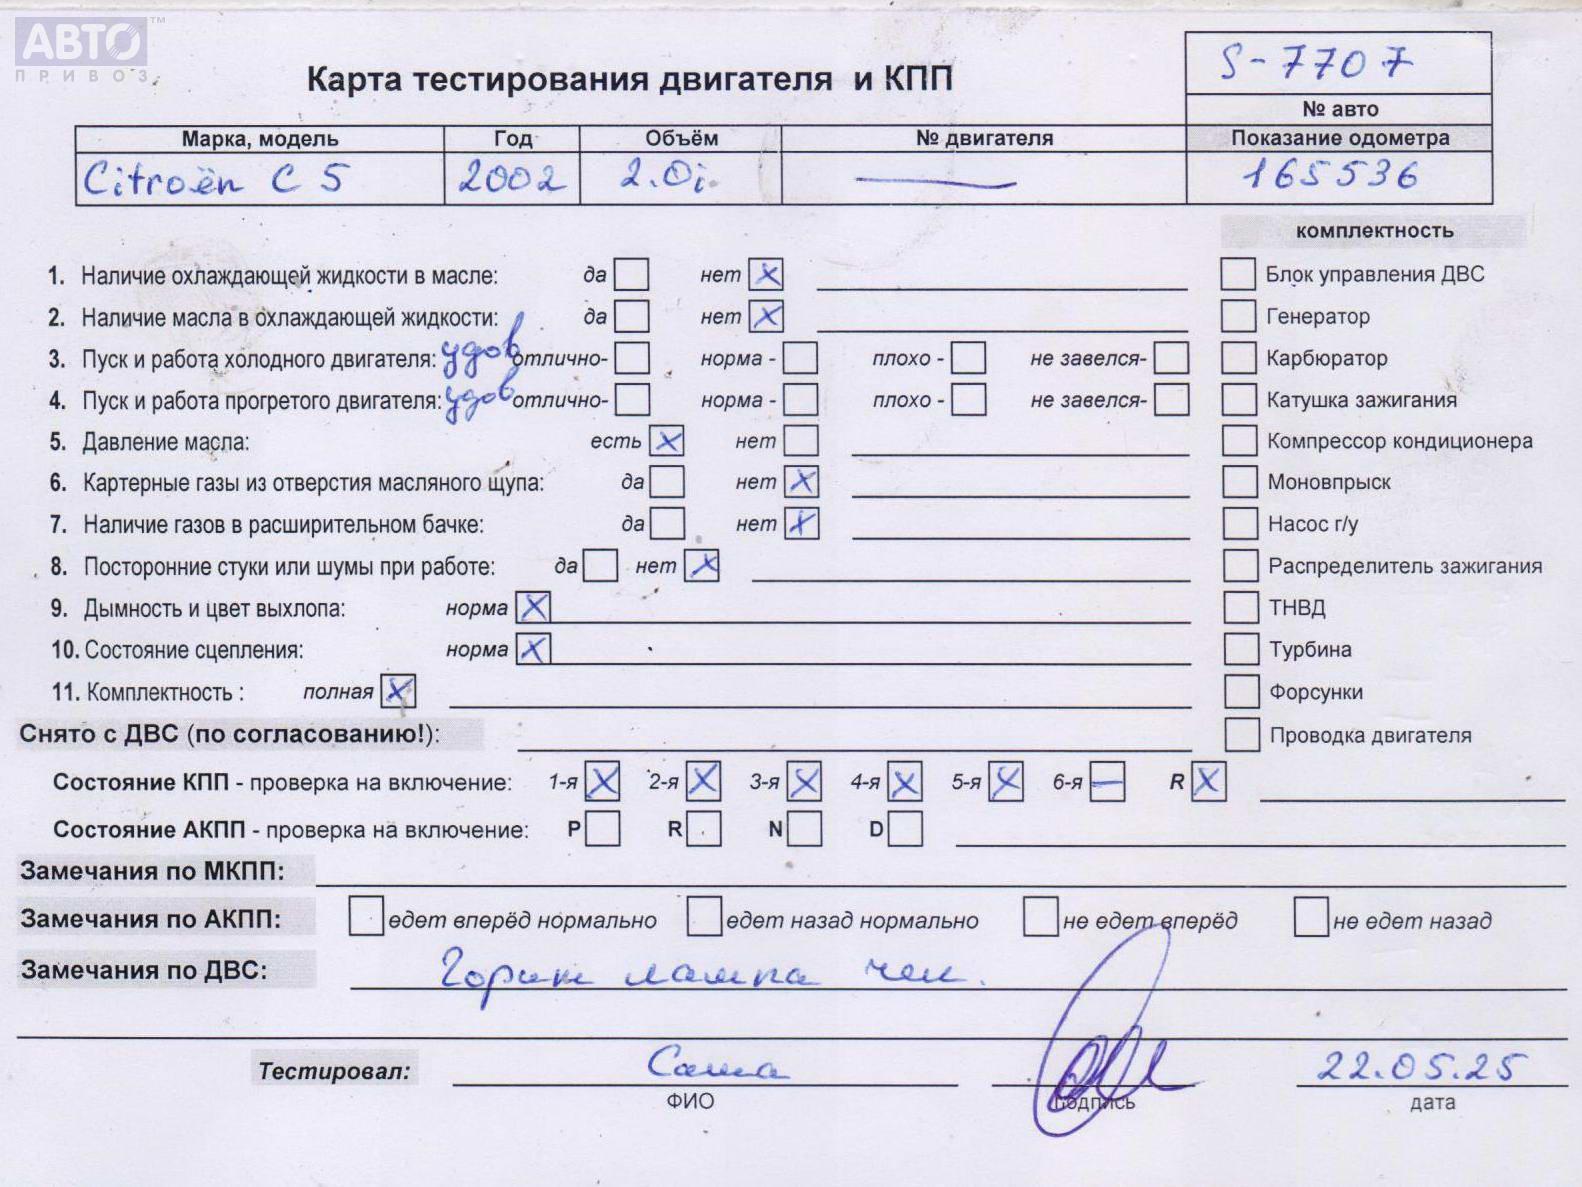 АВТО™
ПРИВОЗ
S-7707
Карта тестирования двигателя и КПП
№ авто
Марка, модель Год Объём № двигателя Показание одометра
Citroën C5 2002 2.0i — 165536
комплектность
1. Наличие охлаждающей жидкости в масле: да нет X Блок управления ДВС
2. Наличие масла в охлаждающей жидкости: да нет X Генератор
3. Пуск и работа холодного двигателя: удов отлично- норма - плохо - не завелся- Карбюратор
4. Пуск и работа прогретого двигателя: удов отлично- норма - плохо - не завелся- Катушка зажигания
5. Давление масла: есть X нет Компрессор кондиционера
6. Картерные газы из отверстия масляного щупа: да нет X Моновпрыск
7. Наличие газов в расширительном бачке: да нет X Насос г/у
8. Посторонние стуки или шумы при работе: да нет X Распределитель зажигания
9. Дымность и цвет выхлопа: норма X ТНВД
10. Состояние сцепления: норма X Турбина
11. Комплектность : полная X Форсунки
Снято с ДВС (по согласованию!): Проводка двигателя
Состояние КПП - проверка на включение: 1-я X 2-я X 3-я X 4-я X 5-я X 6-я — R X
Состояние АКПП - проверка на включение: P R N D
Замечания по МКПП:
Замечания по АКПП: едет вперёд нормально едет назад нормально не едет вперёд не едет назад
Замечания по ДВС: Горит лампа чек.
Тестировал: Саша 22.05.25
ФИО подпись дата